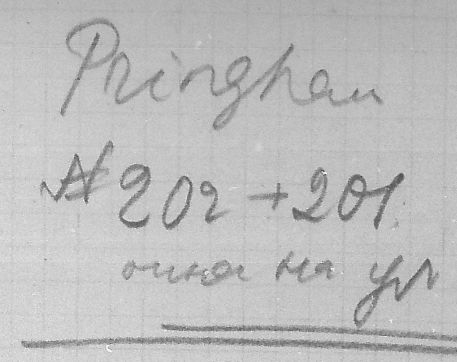 Pringhau
№ 202 + 201.
окна на ул